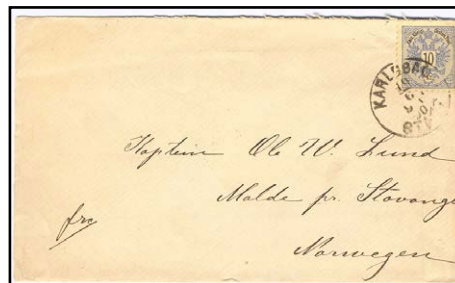 10
KARLSBAD
STADT
Kaptein Ole W. Lund
Malde pr. Stavange
fro
Norwegen